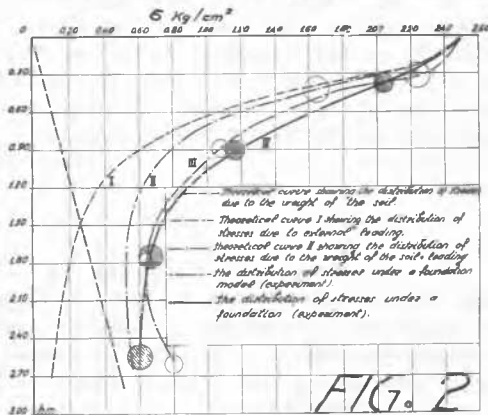 σ Kg/cm²
0 0.20 0.40 0.60 0.80 1.00 1.20 1.40 1.60 1.80 2.00 2.20 2.60
0.30
0.60
0.90
1.20
1.50
1.80
2.10
2.40
2.70
I II III IV
Theoretical curve showing the distribution of stresses
due to the weight of the soil.
Theoretical curve I showing the distribution of
stresses due to external loading.
Theoretical curve II showing the distribution of
stresses due to the weight of the soil + loading
the distribution of stresses under a foundation
model (experiment).
the distribution of stresses under a
foundation (experiment).
FIG. 2